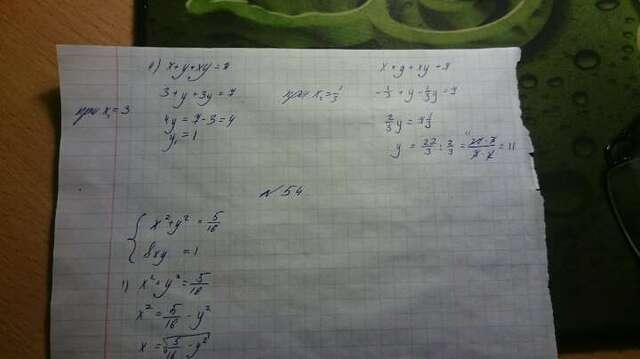 2) x+y+xy=7
при x₁=3
3+y+3y=7
4y=7-3=4
y₁=1
x+y+xy=7
при x₂=-1/3
-1/3+y-1/3y=7
2/3y=7 1/3
y=22/3:2/3=22·3/3·2=11
№54
{x²+y²=5/16
8xy=1
1) x²+y²=5/16
x²=5/16-y²
x=√5/16-y²